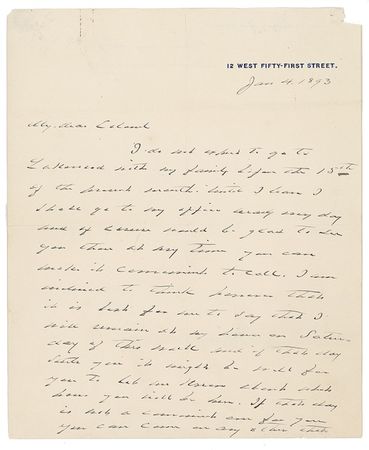 12 WEST FIFTY-FIRST STREET.
Jan 4. 1893
My dear Colonel
I do not expect to go to
Lakewood with my family before the 15th
of the present month. Until I leave I
shall go to my office nearly every day
and of course would be glad to see
you there at any time you can
make it convenient to call. I am
inclined to think however that
it is best for me to say that I
will remain at my house on Satur-
day of this week and if that day
suits you it might be well for
you to let me know about what
hour you will be here. If that day
is not a convenient one for you
you can come on any other that